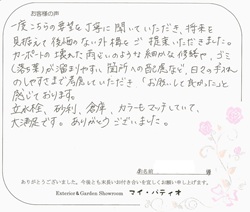 お客様の声
一度こちらの要望を丁寧に聞いていただき、将来を
見据えて後悔のない外構をご提案いただきました。
カーポートの壊れた雨どいのような細かな修繕や、ゴミ
(落ち葉)が溜まりやすい箇所への配慮など、日々の手入れ
のしやすさまで考慮していただき「お願いして良かった」と
感じております。
立水栓、砂利、倉庫、カラーもマッチしていて、
大満足です。ありがとうございました。
お名前 様
ありがとうございました。今後とも末長いお付き合いを宜しくお願い申し上げます。
Exterior&Garden Showroom マイ・パティオ